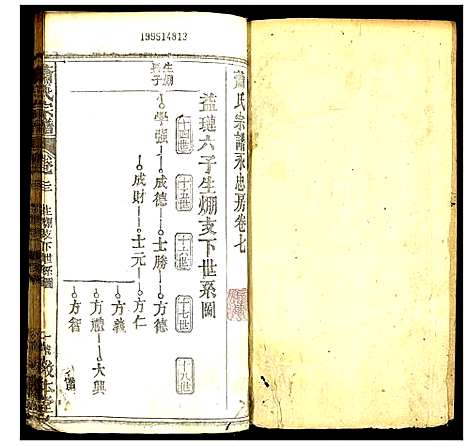 199514813
蕭氏宗譜永忠房卷七
益璉六子生燗支下世系圖
十四世
十五世
十六世
十七世
十八世
生燗
長子
學強
成德
士勝
方德
成財
士元
方仁
方義
方禮
大興
方智
蕭氏宗譜
卷七
生燗支下世系圖